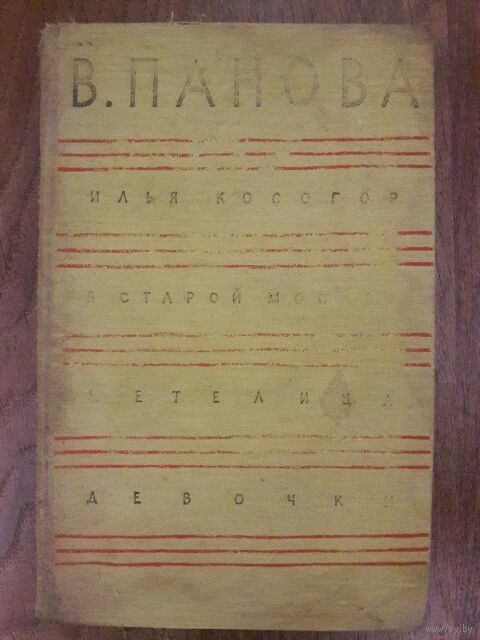 В. ПАНОВА
ИЛЬЯ КОСОГОР
В СТАРОЙ МОС
МЕТЕЛИЦА
ДЕВОЧКИ
www.ay.by